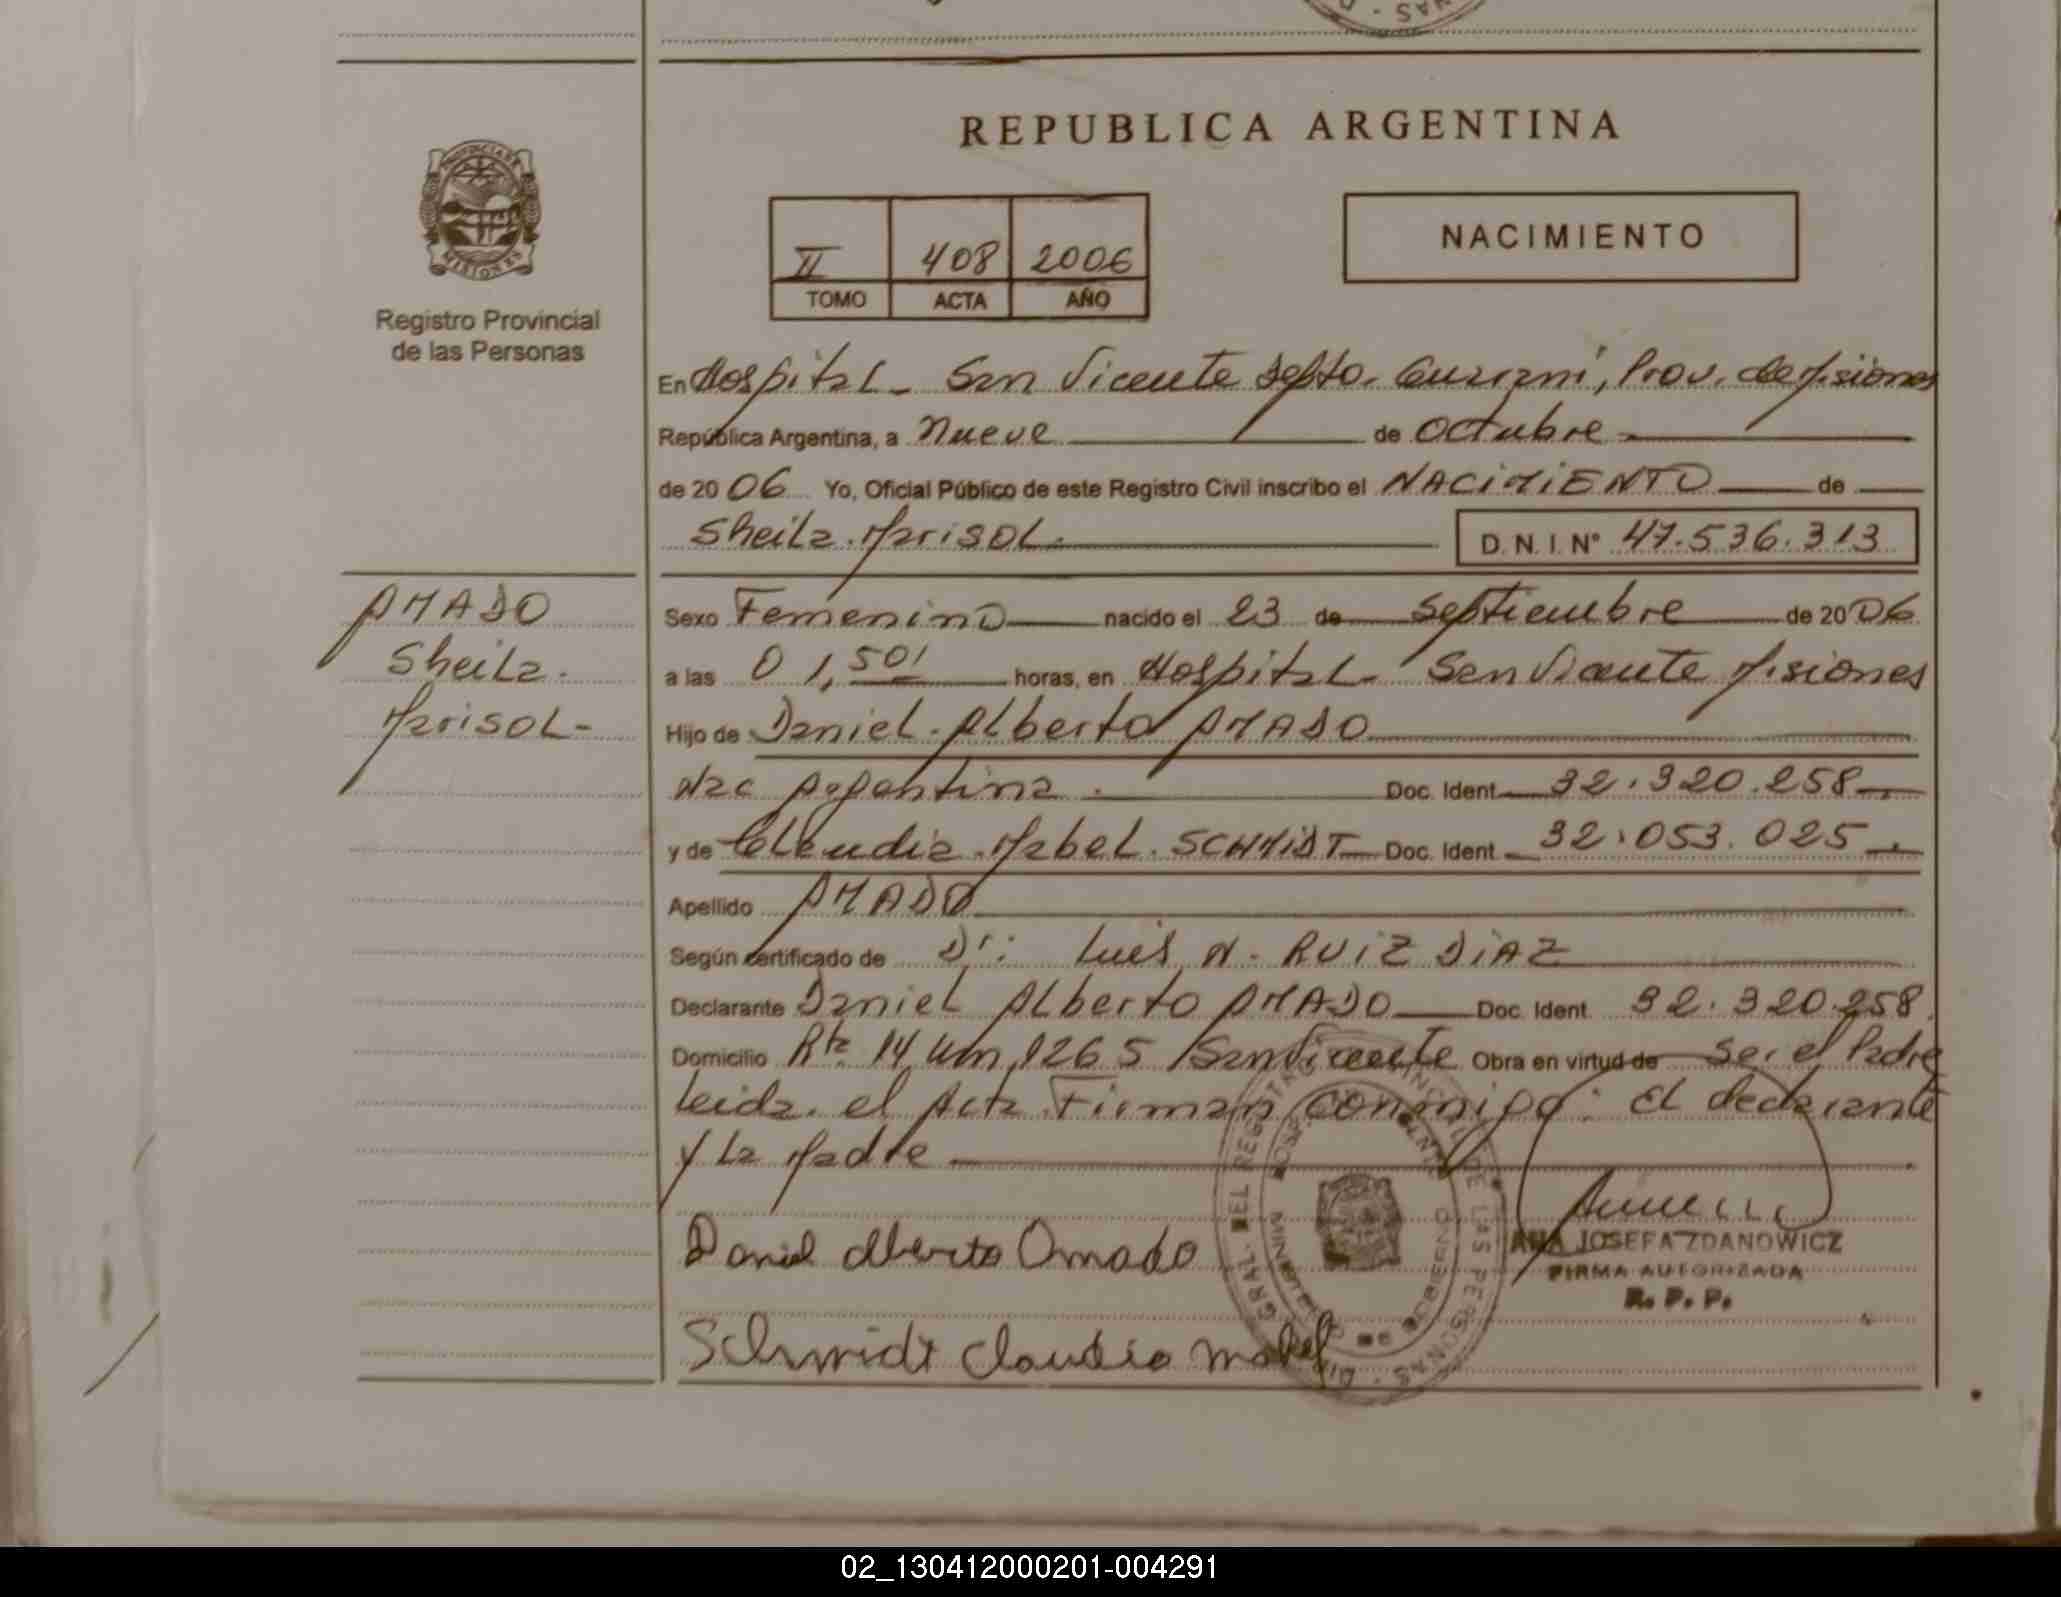 REPUBLICA ARGENTINA
PROVINCIA DE
MISIONES
Registro Provincial
de las Personas
II 408 2006
TOMO ACTA AÑO
NACIMIENTO
En Hospital - San Vicente Depto. Guarani, Prov. de Misiones
República Argentina, a Nueve de Octubre
de 2006 Yo, Oficial Público de este Registro Civil inscribo el NACIMIENTO de
Sheila Marisol
D. N. I. N° 47.536.313
AMADO
Sheila.
Marisol-
Sexo Femenino nacido el 23 de Septiembre de 2006
a las 01,50' horas, en Hospital - San Vicente Misiones
Hijo de Daniel Alberto AMADO
Nac Argentina. Doc. Ident. 32.320.258
y de Claudia Mabel SCHMIDT Doc. Ident. 32.053.025
Apellido AMADO
Según certificado de Dr: Luis N. RUIZ DIAZ
Declarante Daniel Alberto AMADO Doc. Ident. 32.320.258
Domicilio Rta 14 Km 1265 San Vicente Obra en virtud de Ser el Padre
Leida el Acta Firman conmigo: El declarante
y La Madre
Daniel Alberto Amado
Schmidt Claudia Mabel
ANA JOSEFA ZDANOWICZ
FIRMA AUTORIZADA
R. P. P.
02_130412000201-004291